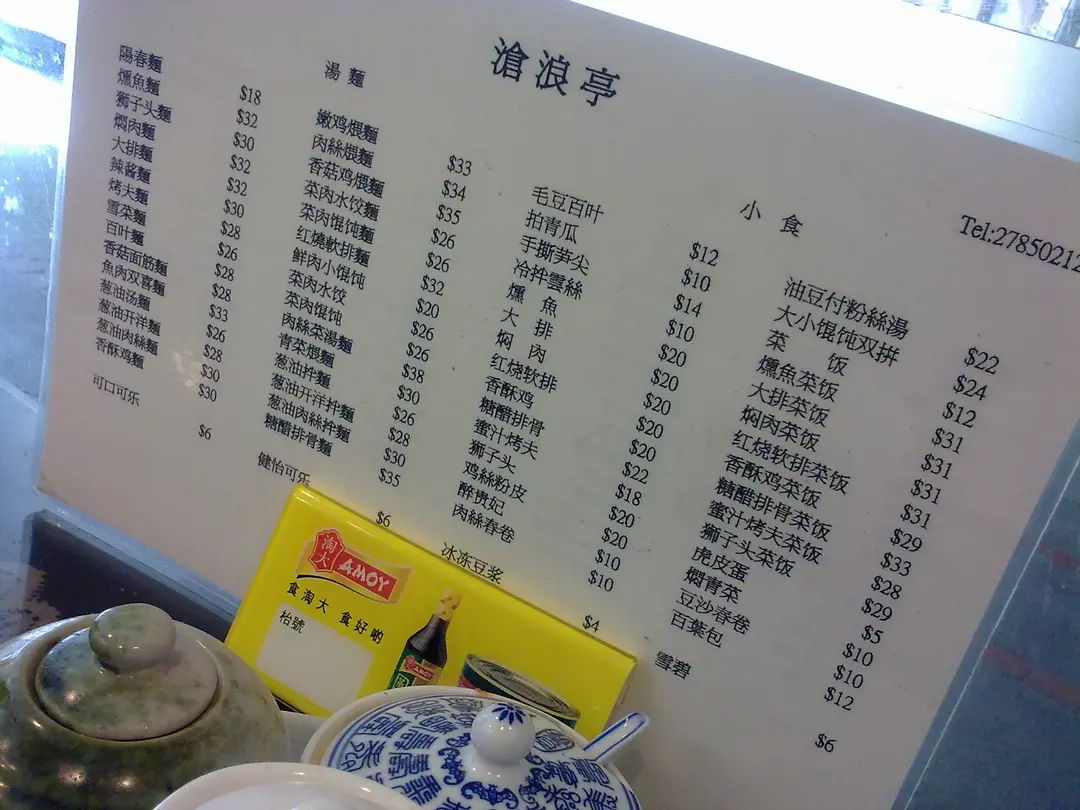 滄浪亭
Tel:27850212
湯 麵
陽春麵 $18
燻魚麵 $32
獅子头麵 $30
燜肉麵 $32
大排麵 $32
辣酱麵 $30
烤夫麵 $28
雪菜麵 $26
百叶麵 $28
香菇面筋麵 $28
魚肉双喜麵 $33
葱油汤麵 $26
葱油开洋麵 $28
葱油肉絲麵 $30
香酥鸡麵 $30
嫩鸡煨麵 $33
肉絲煨麵 $34
香菇鸡煨麵 $35
菜肉水饺麵 $26
菜肉馄饨麵 $26
红燒軟排麵 $32
鲜肉小馄饨 $20
菜肉水饺 $26
菜肉馄饨 $26
肉絲菜湯麵 $38
青菜煨麵 $30
葱油拌麵 $26
葱油开洋拌麵 $28
葱油肉絲拌麵 $30
糖醋排骨麵 $35
小 食
毛豆百叶 $12
拍青瓜 $10
手撕笋尖 $14
冷拌雲絲 $10
燻 魚 $20
大 排 $20
焖 肉 $20
红烧软排 $20
香酥鸡 $20
糖醋排骨 $22
蜜汁烤夫 $18
狮子头 $20
鸡絲粉皮 $20
醉贵妃 $10
肉絲春卷 $10
油豆付粉絲湯 $22
大小馄饨双拼 $24
菜 饭 $12
燻魚菜饭 $31
大排菜饭 $31
焖肉菜饭 $31
红烧软排菜饭 $31
香酥鸡菜饭 $29
糖醋排骨菜饭 $33
蜜汁烤夫菜饭 $28
狮子头菜饭 $29
虎皮蛋 $5
燜青菜 $10
豆沙春卷 $10
百葉包 $12
可口可乐 $6
健怡可乐 $6
冰冻豆浆 $4
雪碧 $6
淘大 AMOY
食淘大 食好啲
枱號
AMOY